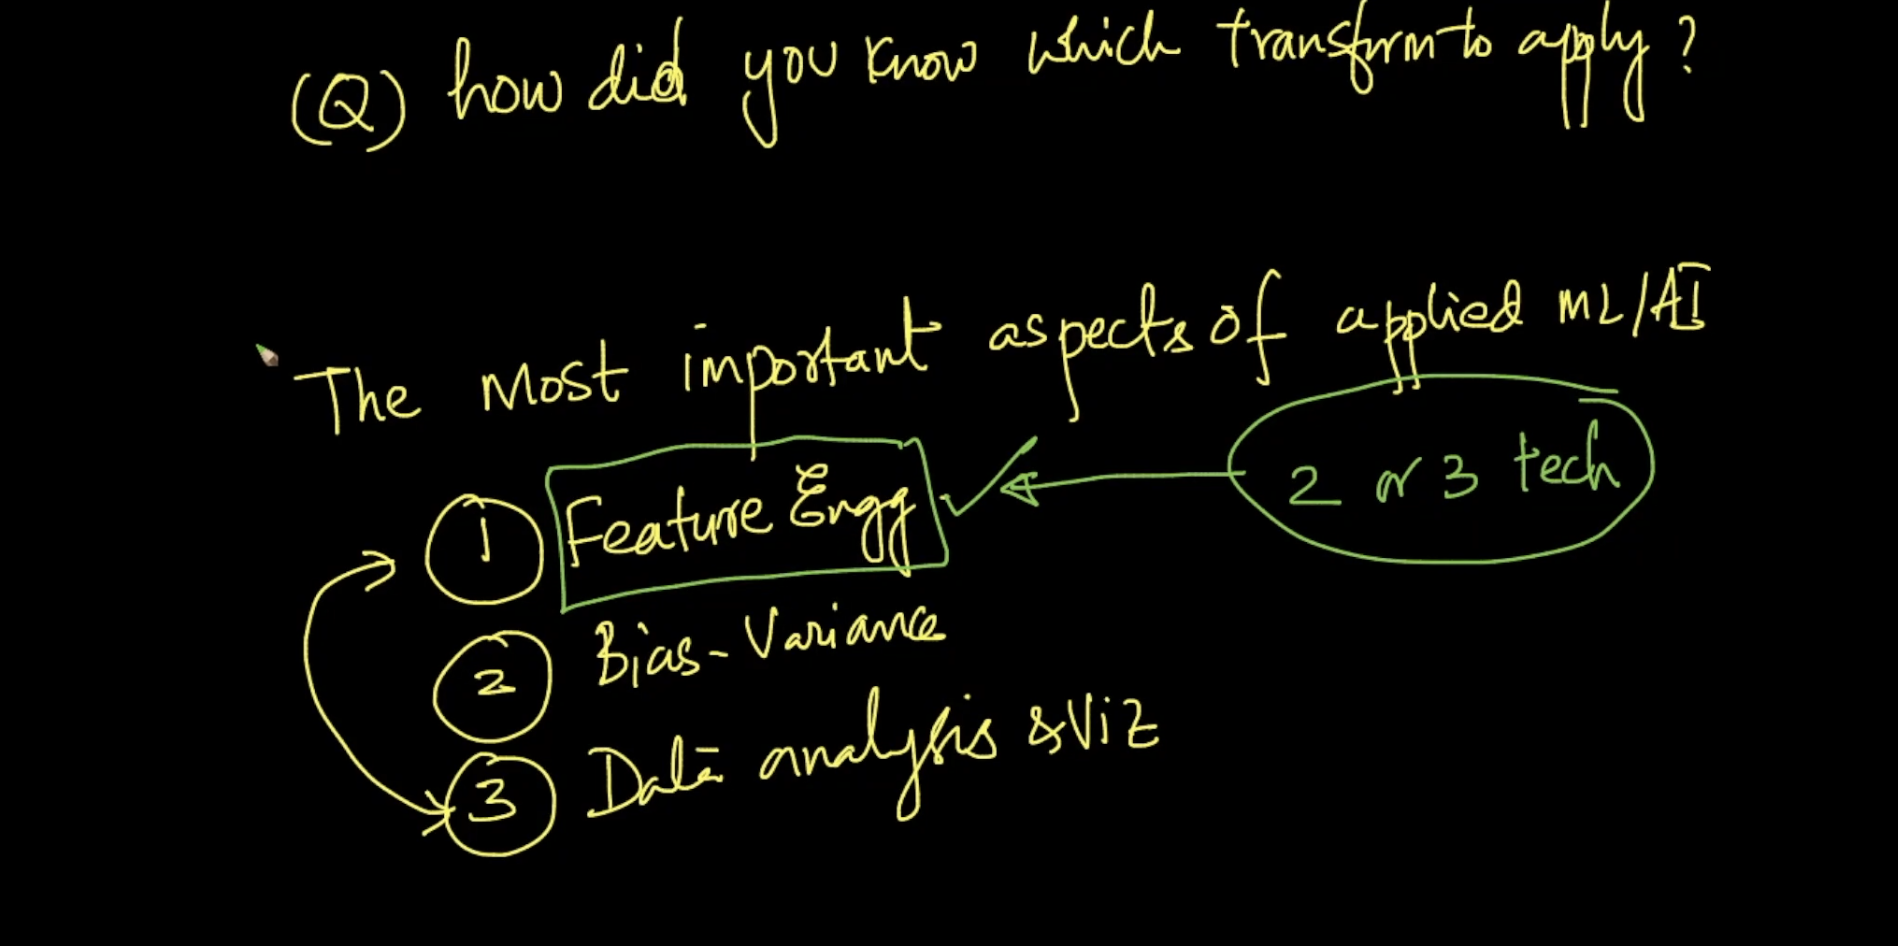 (Q) how did you know which transform to apply?
The most important aspects of applied ML/AI
1 Feature Engg
2 or 3 tech
2 Bias-Variance
3 Data analysis & Viz